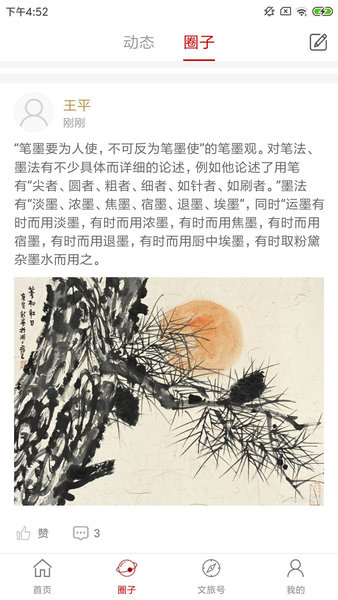 下午4:52
动态 圈子
王平
刚刚
“笔墨要为人使，不可反为笔墨使”的笔墨观。对笔法、
墨法有不少具体而详细的论述，例如他论述了用笔
有“尖者、圆者、粗者、细者、如针者、如刷者。”墨法
有“淡墨、浓墨、焦墨、宿墨、退墨、埃墨”，同时“运墨有
时而用淡墨，有时而用浓墨，有时而用焦墨，有时而用
宿墨，有时而用退墨，有时而用厨中埃墨，有时取粉黛
杂墨水而用之。
赞 3
首页 圈子 文旅号 我的